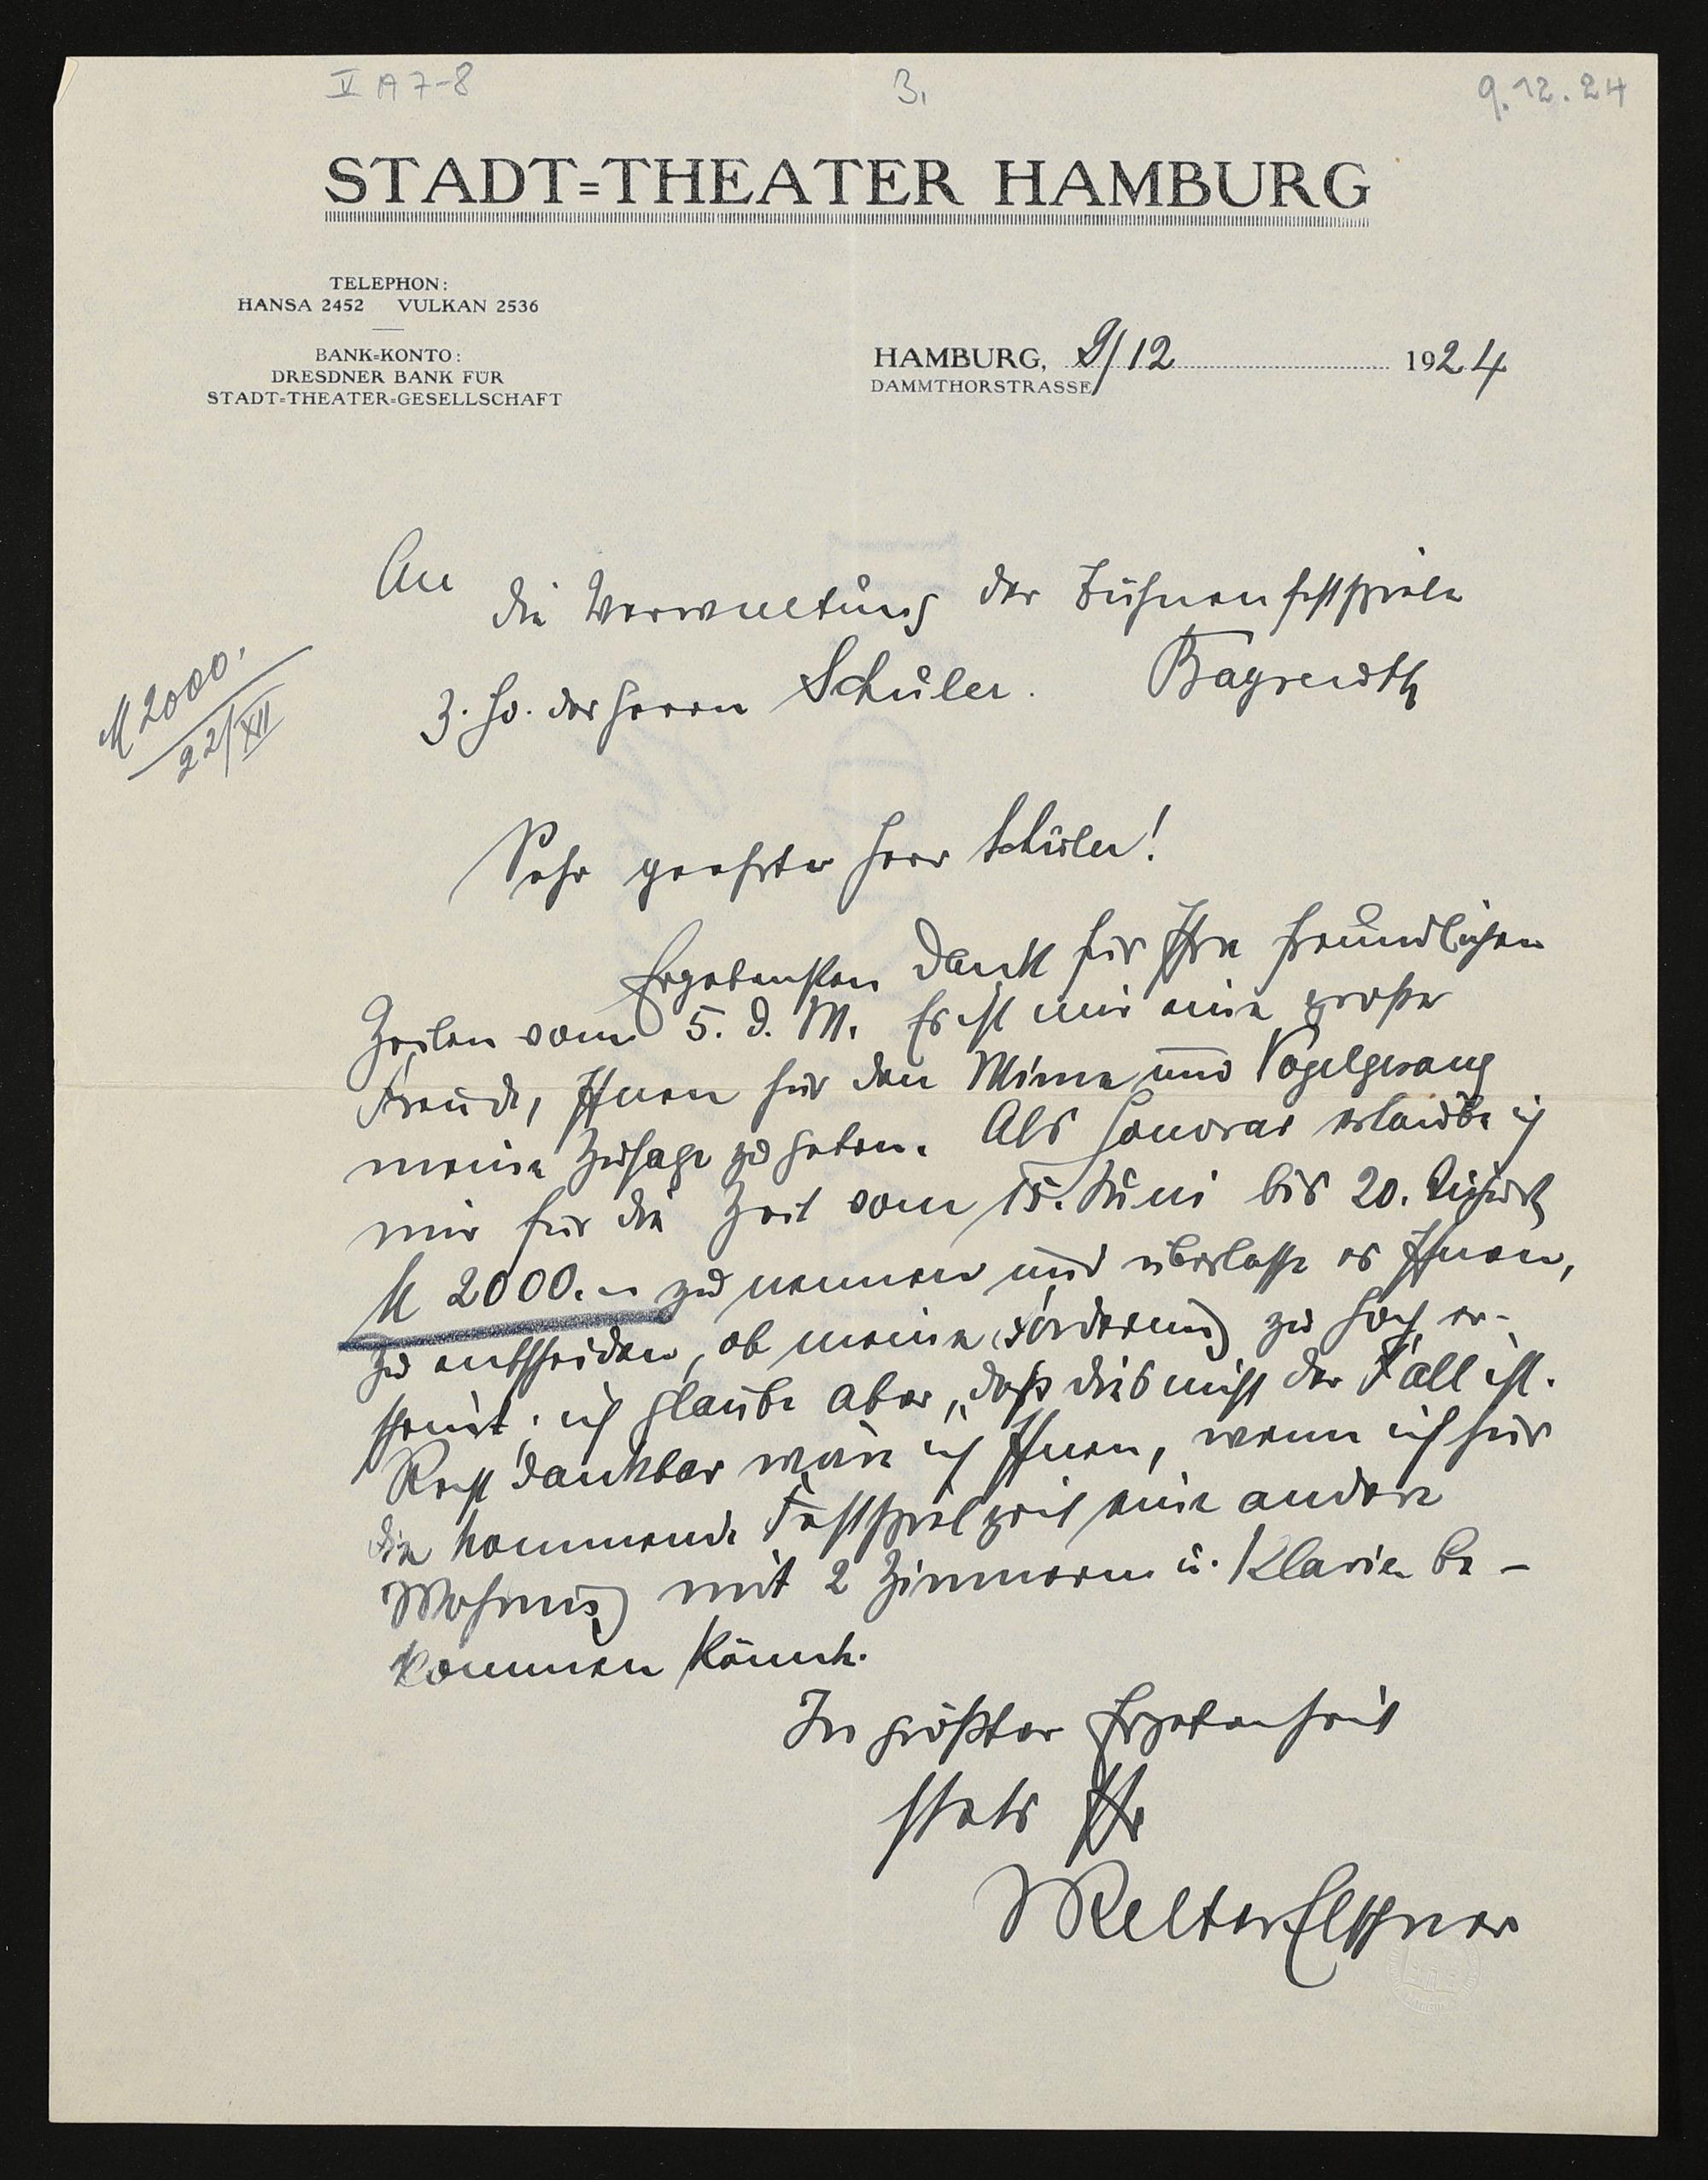 V A 7-8
3.
9.12.24
STADT=THEATER HAMBURG
TELEPHON:
HANSA 2452 VULKAN 2536
BANK=KONTO:
DRESDNER BANK FÜR
STADT=THEATER=GESELLSCHAFT
HAMBURG, 9/12 1924
DAMMTHORSTRASSE
An
die Verwaltung der Bühnenfestspiele
z. Hd. des Herrn Schüler. Bayreuth
M 2000.
22/XII
Sehr geehrter Herr Schüler!
Ergebensten Dank für Ihre freundlichen
Zeilen vom 5. d. M. Es ist mir eine große
Freude, Ihnen für den Mime und Vogelgesang
meine Zusage zu geben. Als Honorar erlaube ich
mir für die Zeit vom 15. Juni bis 20. August
M 2000.– zu nennen und überlasse es Ihnen,
zu entscheiden, ob meine Forderung zu hoch er-
scheint; ich glaube aber, daß dies nicht der Fall ist.
Recht dankbar wäre ich Ihnen, wenn ich für
die kommende Festspielzeit eine andere
Wohnung mit 2 Zimmern u. Klavier be-
kommen könnte.
In größter Ergebenheit
stets Ihr
Walter Elschner